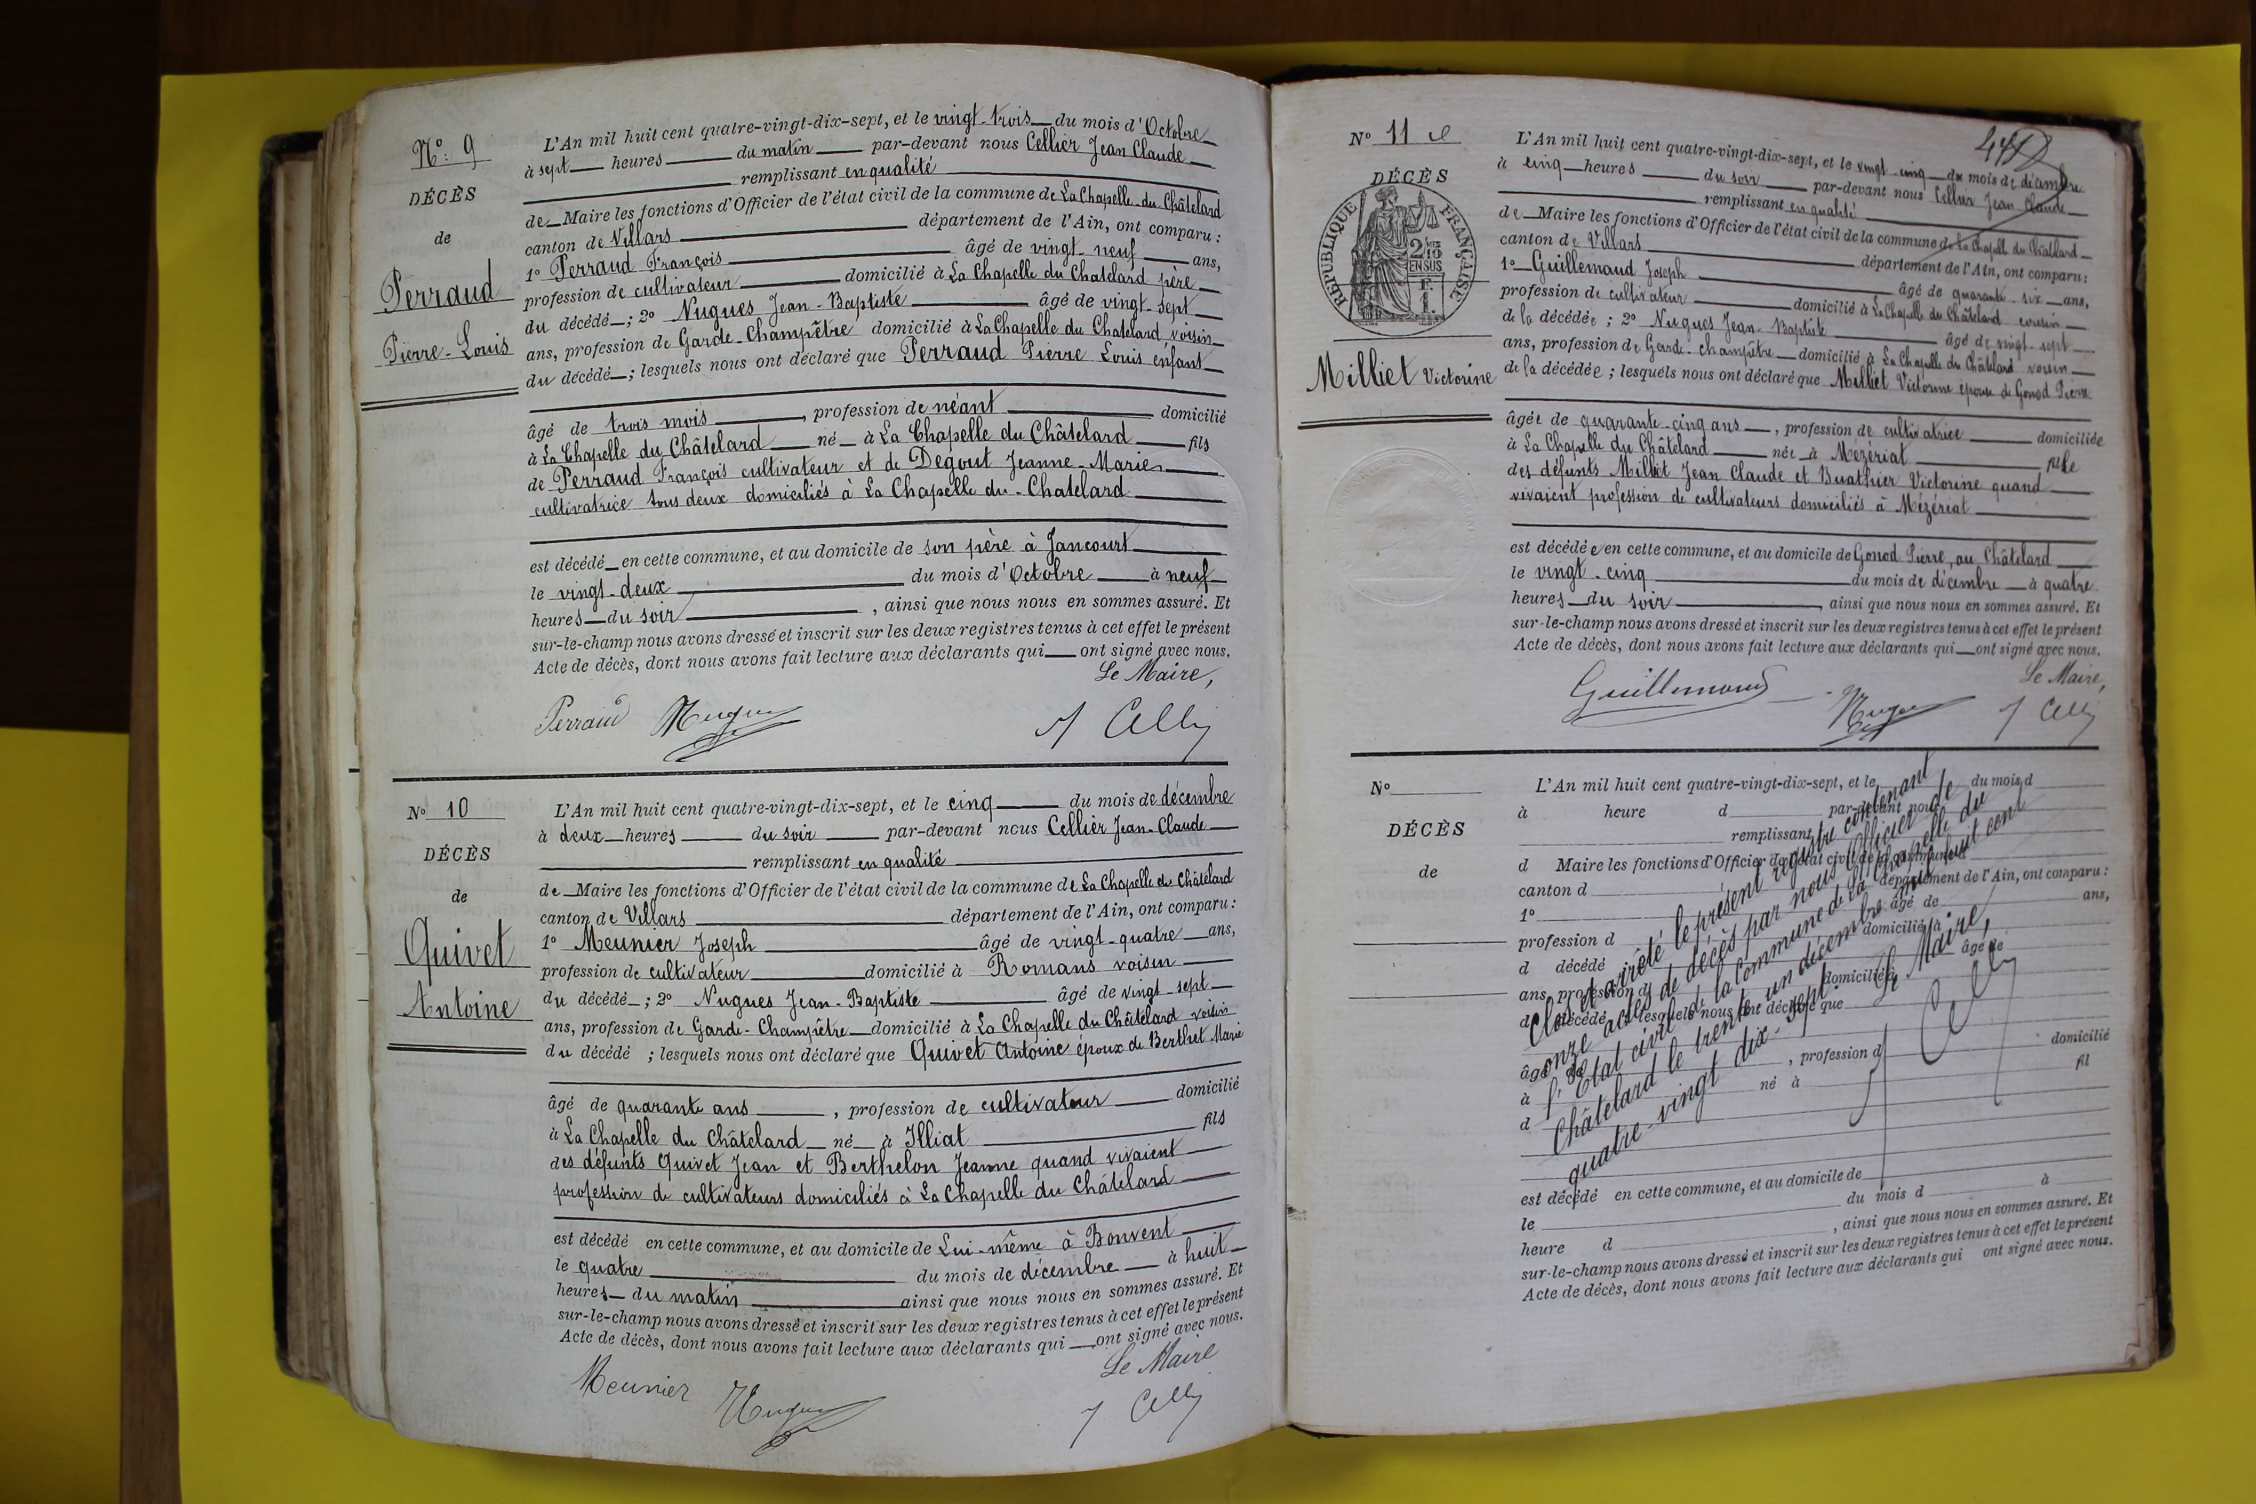 N°: 9
DÉCÈS
de
Perraud
Pierre-Louis
L'An mil huit cent quatre-vingt-dix-sept, et le vingt-trois du mois d'Octobre
à sept heures du matin par-devant nous Cellier Jean Claude
remplissant en qualité
de Maire les fonctions d'Officier de l'état civil de la commune de La Chapelle-du-Châtelard
canton de Villars département de l'Ain, ont comparu :
1° Perraud François âgé de vingt-neuf ans,
profession de cultivateur domicilié à La Chapelle du Chatelard père
du décédé ; 2° Nugues Jean-Baptiste âgé de vingt-sept
ans, profession de Garde-Champêtre domicilié à La Chapelle du Chatelard voisin
du décédé ; lesquels nous ont déclaré que Perraud Pierre Louis enfant
âgé de trois mois, profession de néant domicilié
à La Chapelle du Châtelard né à La Chapelle du Châtelard fils
de Perraud François cultivateur et de Degout Jeanne-Marie
cultivatrice tous deux domiciliés à La Chapelle du-Chatelard
est décédé en cette commune, et au domicile de son père à Jancourt
le vingt-deux du mois d'Octobre à neuf
heures du soir, ainsi que nous nous en sommes assuré. Et
sur-le-champ nous avons dressé et inscrit sur les deux registres tenus à cet effet le présent
Acte de décès, dont nous avons fait lecture aux déclarants qui ont signé avec nous.
Le Maire,
Perraud Nugues J Cellier
N° 10
DÉCÈS
de
Quivet
Antoine
L'An mil huit cent quatre-vingt-dix-sept, et le cinq du mois de décembre
à deux heures du soir par-devant nous Cellier Jean-Claude
remplissant en qualité
de Maire les fonctions d'Officier de l'état civil de la commune de La Chapelle du Châtelard
canton de Villars département de l'Ain, ont comparu :
1° Meunier Joseph âgé de vingt-quatre ans,
profession de cultivateur domicilié à Romans voisin
du décédé ; 2° Nugues Jean-Baptiste âgé de vingt-sept
ans, profession de Garde-Champêtre domicilié à La Chapelle du Châtelard voisin
du décédé ; lesquels nous ont déclaré que Quivet Antoine époux de Berthet Marie
âgé de quarante ans, profession de cultivateur domicilié
à La Chapelle du Châtelard né à Illiat fils
des défunts Quivet Jean et Berthelon Jeanne quand vivaient
profession de cultivateurs domiciliés à La Chapelle du Châtelard
est décédé en cette commune, et au domicile de Lui-même à Bonvent
le quatre du mois de décembre à huit
heures du matin ainsi que nous nous en sommes assuré. Et
sur-le-champ nous avons dressé et inscrit sur les deux registres tenus à cet effet le présent
Acte de décès, dont nous avons fait lecture aux déclarants qui ont signé avec nous.
Le Maire
Meunier Nugues J Cellier
N° 11
DÉCÈS
RÉPUBLIQUE FRANÇAISE
Milliet Victorine
L'An mil huit cent quatre-vingt-dix-sept, et le vingt-cinq du mois de décembre
à cinq heures du soir par-devant nous Cellier Jean Claude
remplissant en qualité
de Maire les fonctions d'Officier de l'état civil de la commune de La Chapelle du Châtelard
canton de Villars département de l'Ain, ont comparu :
1° Guillemaud Joseph âgé de quarante-six ans,
profession de cultivateur domicilié à La Chapelle du Châtelard cousin
de la décédée ; 2° Nugues Jean-Baptiste âgé de vingt-sept
ans, profession de Garde-champêtre domicilié à La Chapelle du Châtelard voisin
de la décédée ; lesquels nous ont déclaré que Milliet Victorine épouse de Gonod Pierre
âgée de quarante-cinq ans, profession de cultivatrice domiciliée
à La Chapelle du Châtelard née à Mézériat fille
des défunts Milliet Jean Claude et Buathier Victorine quand
vivaient profession de cultivateurs domiciliés à Mézériat
est décédée en cette commune, et au domicile de Gonod Pierre, au Châtelard
le vingt-cinq du mois de décembre à quatre
heures du soir, ainsi que nous nous en sommes assuré. Et
sur-le-champ nous avons dressé et inscrit sur les deux registres tenus à cet effet le présent
Acte de décès, dont nous avons fait lecture aux déclarants qui ont signé avec nous.
Le Maire,
Guillemaud Nugues J Cellier
N°
DÉCÈS
de
L'An mil huit cent quatre-vingt-dix-sept, et le du mois d
à heure d par-devant nous
remplissant
d Maire les fonctions d'Officier de l'état civil de la commune d
canton d département de l'Ain, ont comparu :
1° âgé de ans,
profession d domicilié à
d décédé âgé de
ans, profession d domicilié à
d décédé lesquels nous ont déclaré que
âgé de, profession d domicilié
à né à fil
d
est décédé en cette commune, et au domicile de
le du mois d à
heure d, ainsi que nous nous en sommes assuré. Et
sur-le-champ nous avons dressé et inscrit sur les deux registres tenus à cet effet le présent
Acte de décès, dont nous avons fait lecture aux déclarants qui ont signé avec nous.
Clos et arrêté le présent registre contenant
onze actes de décès par nous Officier de
l'Etat civil de la commune de La Chapelle du
Châtelard le trente un décembre mil huit cent
quatre-vingt dix-sept.
Le Maire,
J Cellier